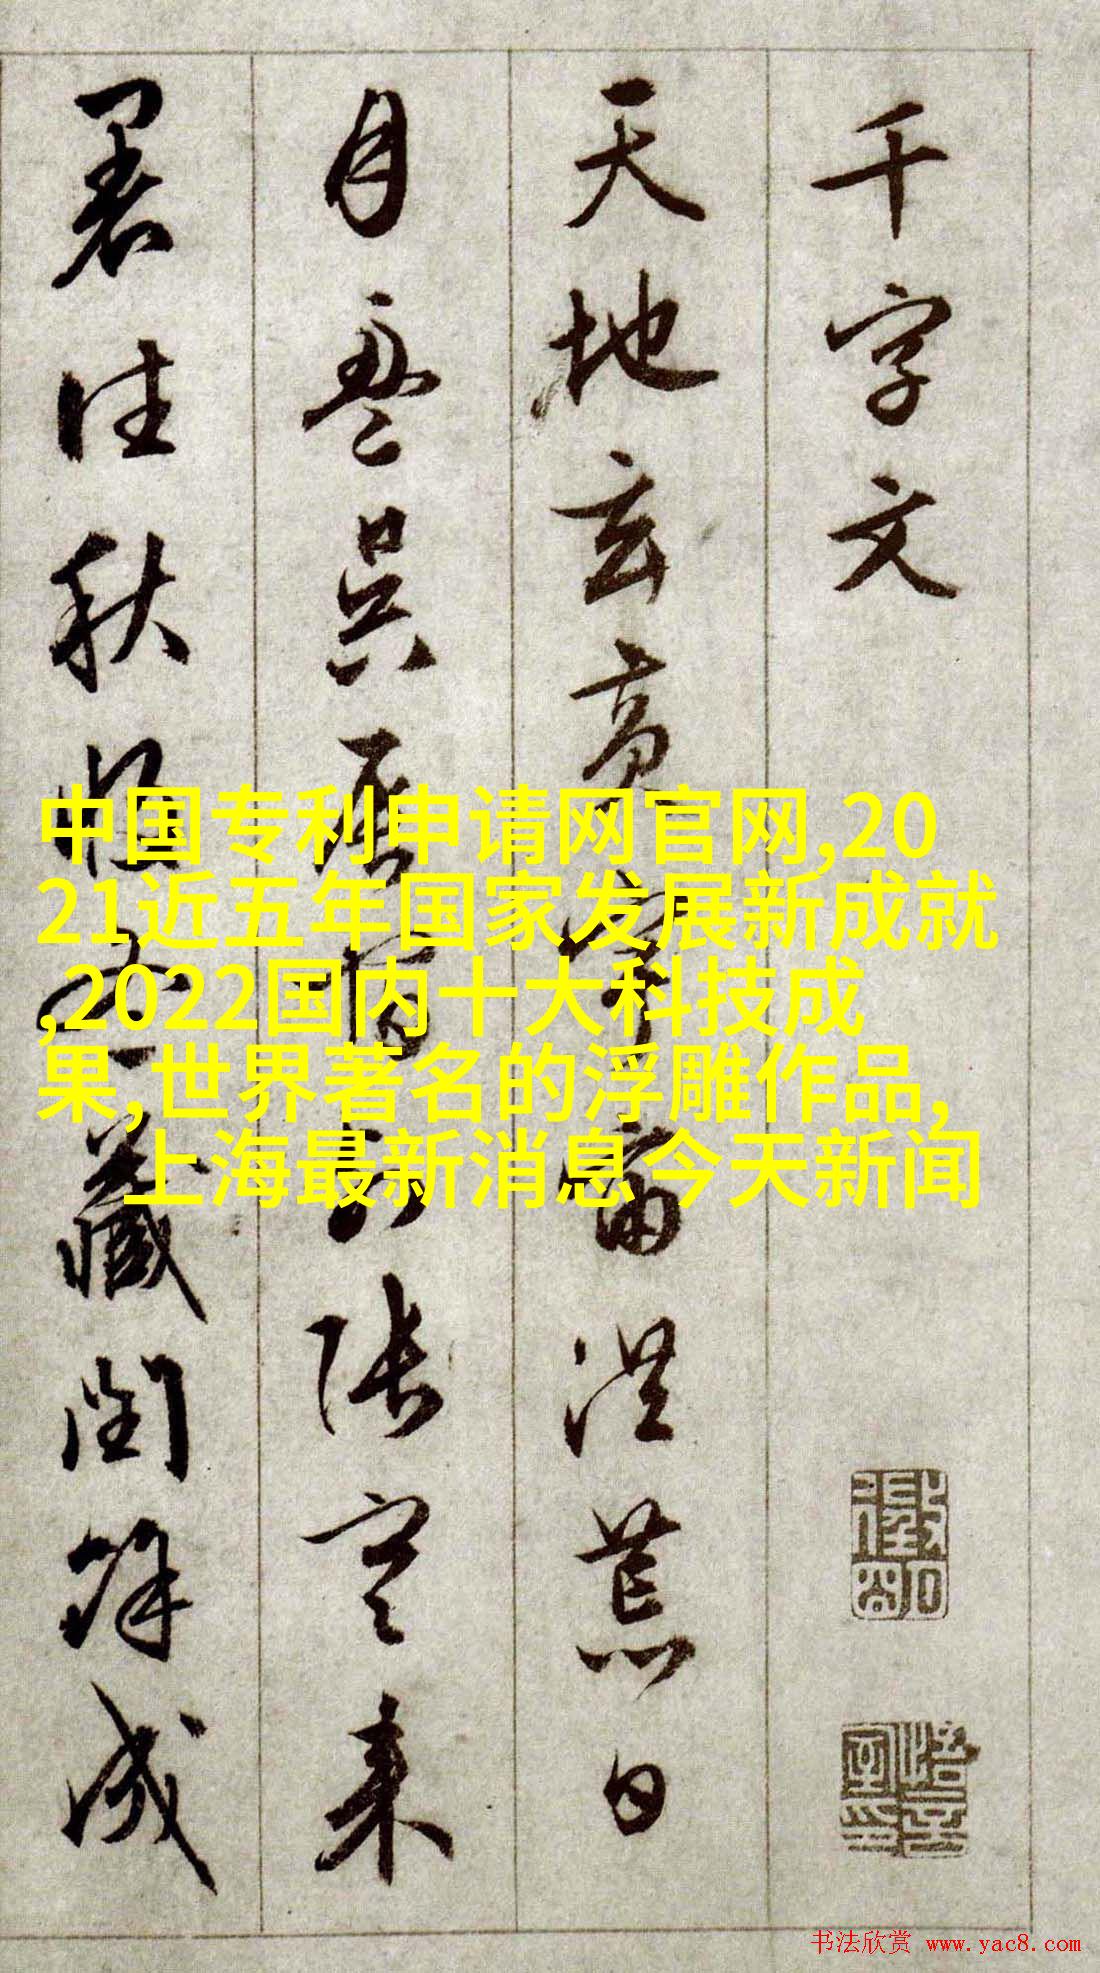 千字文
天地玄黃宇宙洪荒日
月盈昃辰宿列張寒来
暑往秋收冬藏閏餘成
中国专利申请网官网,20
21近五年国家发展新成就
,2022国内十大科技成
果,世界著名的浮雕作品,
上海最新消息今天新闻
书法欣赏 www.yac8.com